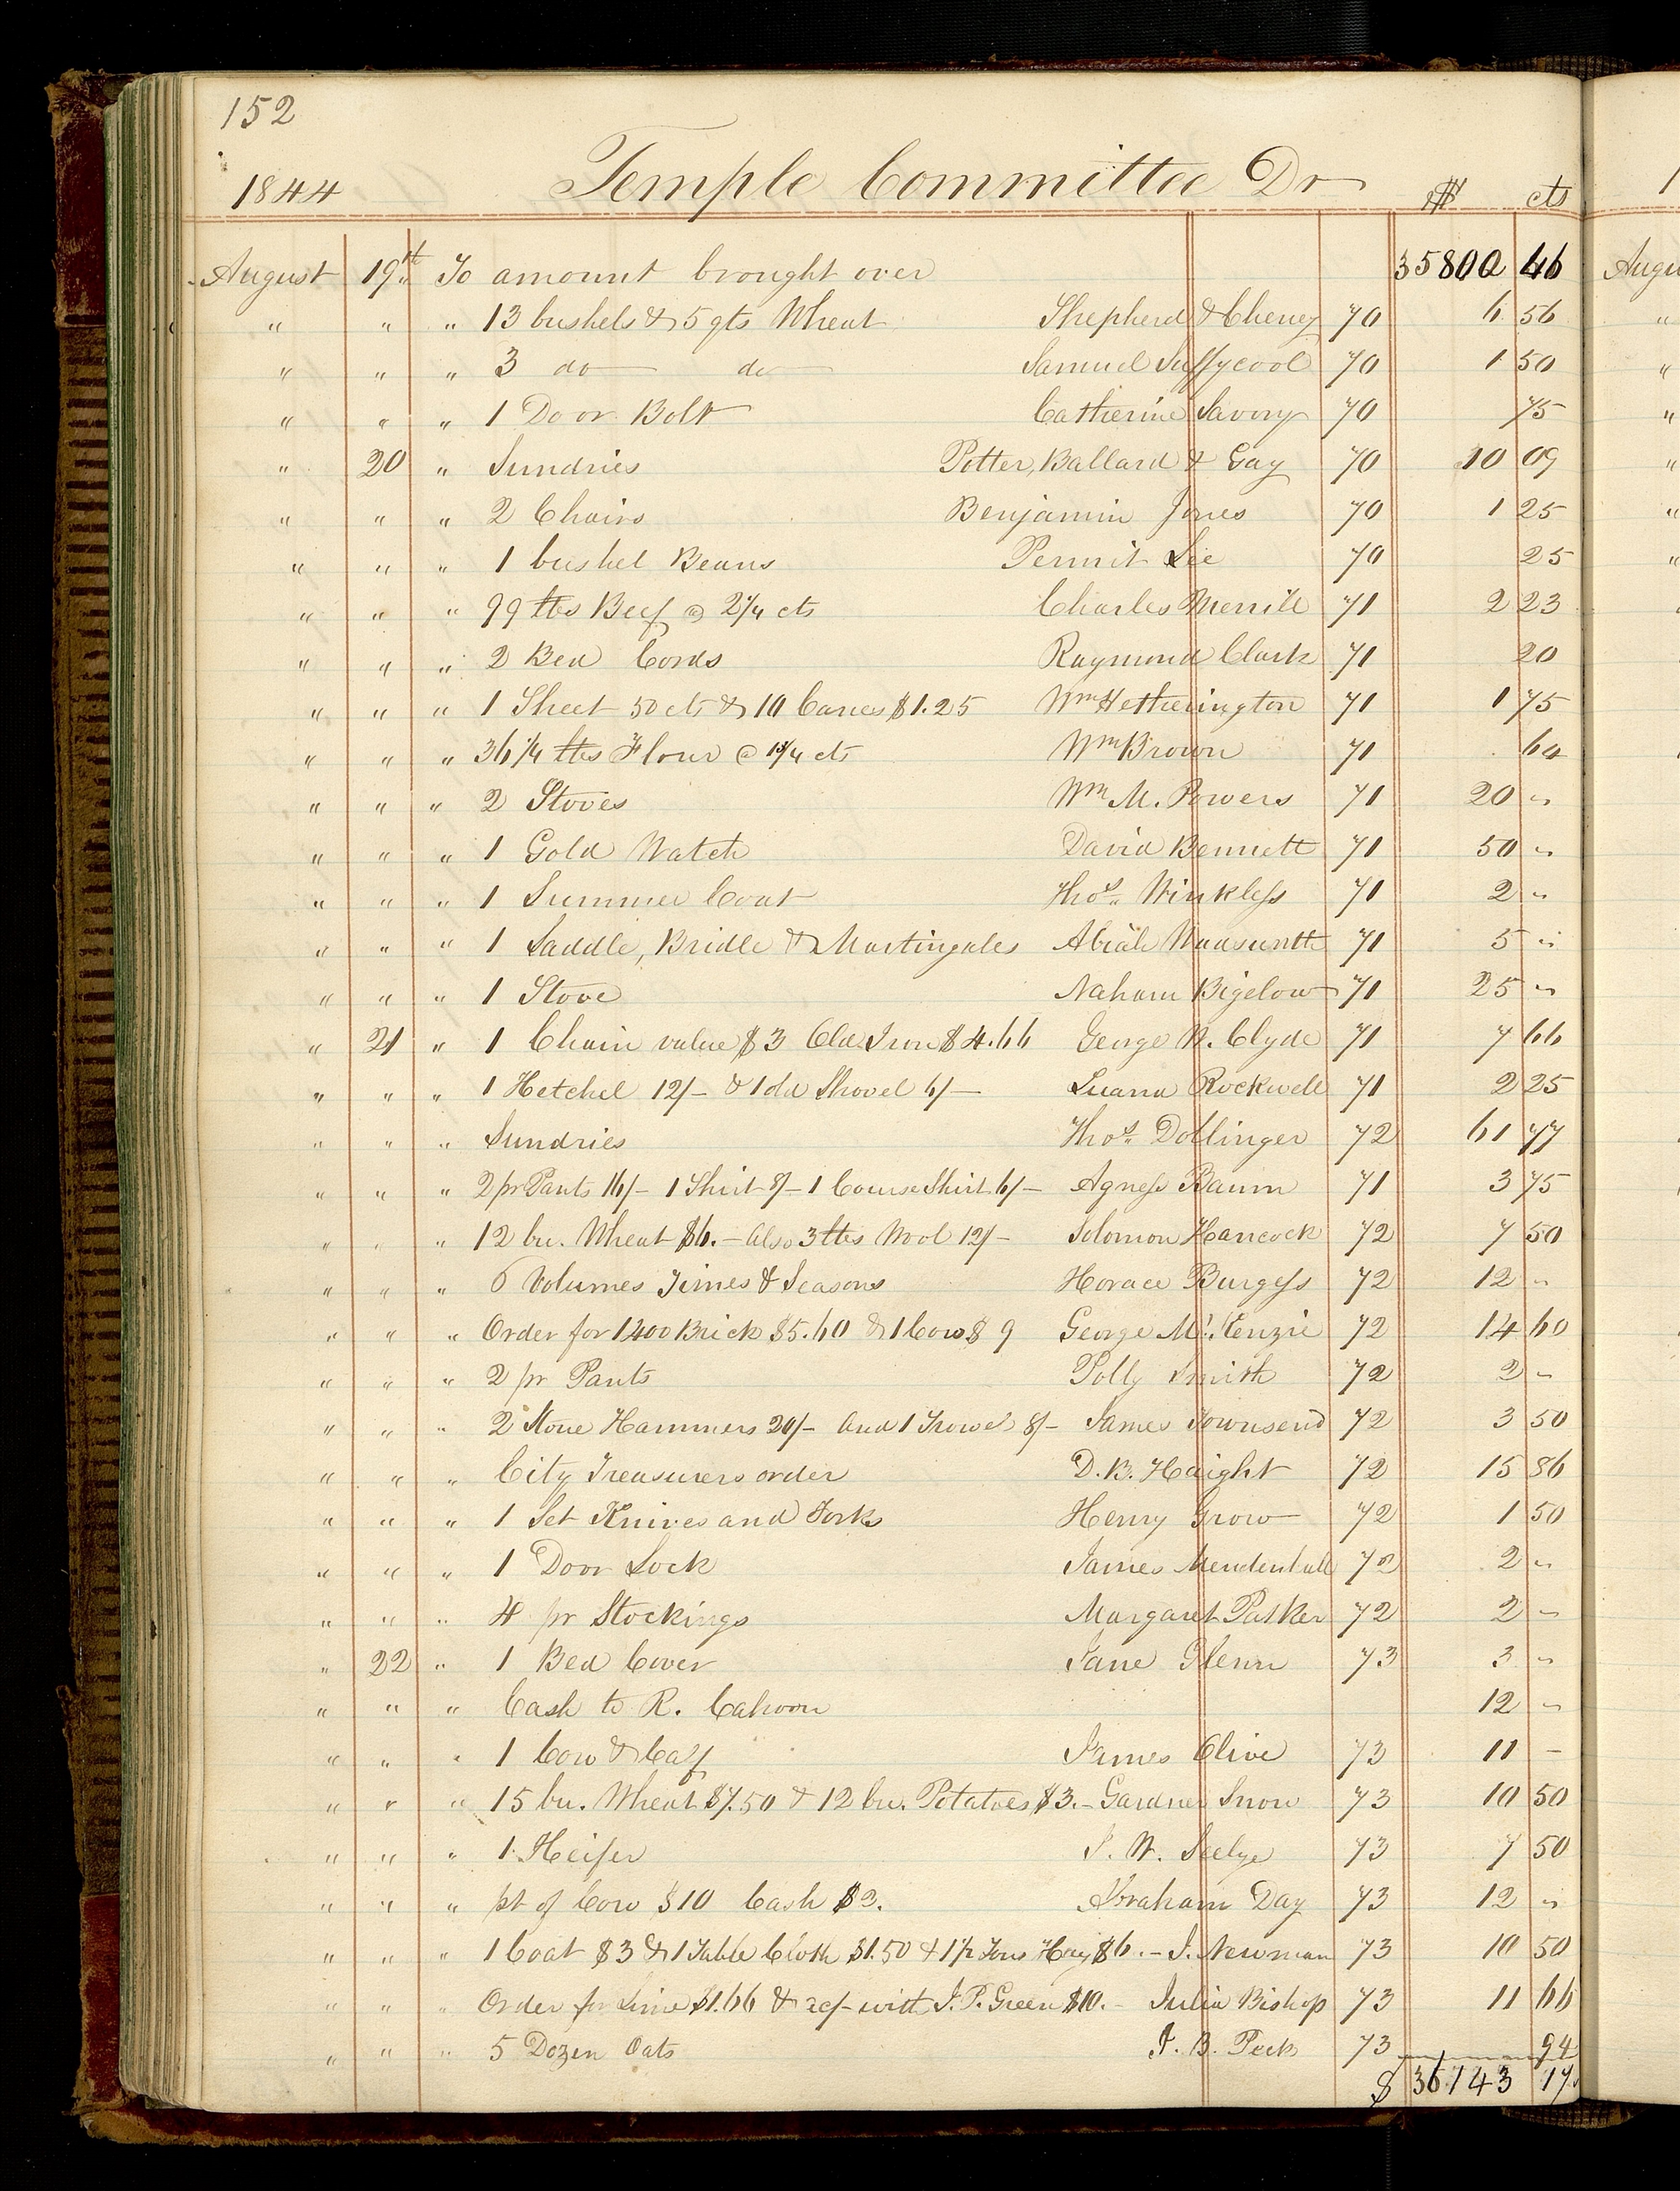 152
1844 Temple Committee Dr $ cts
August 19th To amount brought over 35800 46
" " " 13 bushels & 5 qts Wheat Shepherd & Cheney 70 6 56
" " " 3 do do Samuel Suffycool 70 1 50
" " " 1 Door Bolt Catherine Savory 70 75
" 20 " Sundries Potter, Ballard & Gay 70 10 09
" " " 2 Chairs Benjamin Jones 70 1 25
" " " 1 bushel Beans Permit Lee 70 25
" " " 99 lbs Beef @ 2 1/4 cts Charles Merrill 71 2 23
" " " 2 Bed Cords Raymond Clark 71 20
" " " 1 Sheet 50 cts & 10 Canes $1.25 Wm Hetherington 71 1 75
" " " 36 1/4 lbs Flour @ 1 3/4 cts Wm Brown 71 64
" " " 2 Stoves Wm M. Powers 71 20 "
" " " 1 Gold Watch David Bennett 71 50 "
" " " 1 Summer Coat Thos. Winkless 71 2 "
" " " 1 Saddle, Bridle & Martingales Abiah Wadsworth 71 5 "
" " " 1 Stove Naham Bigelow 71 25 "
" 21 " 1 Chain value $3 Old Iron $4.66 George W. Clyde 71 7 66
" " " 1 Hetchel 12/- & 1 old Shovel 6/- Luana Rockwell 71 2 25
" " " Sundries Thos. Dollinger 72 61 77
" " " 2 pr Pants 16/- 1 Shirt 8/- 1 Course Shirt 6/- Agness Baum 71 3 75
" " " 12 bu. Wheat $6.- Also 3 lbs Wool 12/- Solomon Hancock 72 7 50
" " " 6 Volumes Times & Seasons Horace Burgess 72 12 "
" " " Order for 1400 Brick $5.60 & 1 Cow $ 9 George Mc.Kenzie 72 14 60
" " " 2 pr Pants Polly Smith 72 2 -
" " " 2 Stone Hammers 20/- and 1 Trowel 8/- James Townsend 72 3 50
" " " City Treasurers order D. B. Haight 72 15 86
" " " 1 Set Knives and Forks Henry Grow 72 1 50
" " " 1 Door Lock James Mendenhall 72 2 "
" " " 4 pr Stockings Margaret Parker 72 2 -
" 22 " 1 Bed Cover Jane Glenn 73 3 "
" " " Cash to R. Cahoon 12 "
" " " 1 Cow & Calf James Olive 73 11 -
" " " 15 bu. Wheat $7.50 & 12 bu. Potatoes $3.- Gardner Snow 73 10 50
" " " 1 Heifer J. W. Seelye 73 7 50
" " " pt of Cow $10 Cash $2. Abraham Day 73 12 "
" " " 1 Coat $3 & 1 Table Cloth $1.50 & 1 1/2 Tons Hay $6.- J. Newman 73 10 50
" " " Order for Lime $1.66 & with J. P. Green $10.- Julia Bishop 73 11 66
" " " 5 Dozen Oats J. B. Peck 73 94
$ 36143 17
Augu